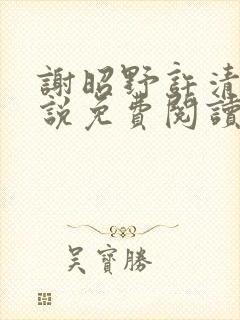 謝昭野許清
説免費閱讀
吴寶勝